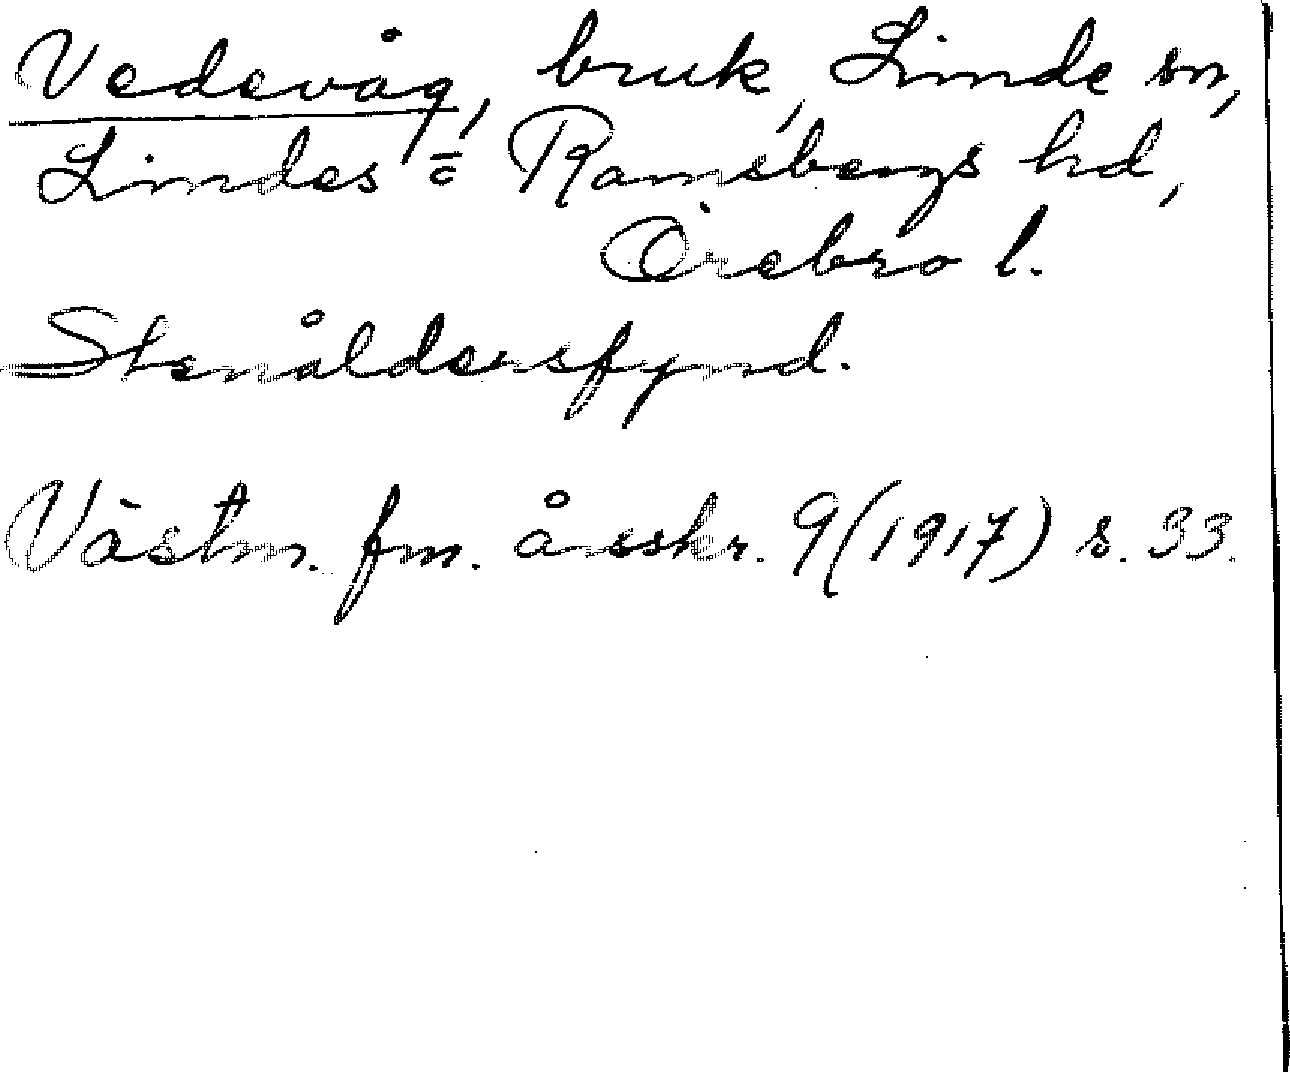 Vedevåg, bruk, Linde sn,
Lindes = o Ramsbergs hd,
Örebro l.
Stenåldersfynd.
Västm. fm. årsskr. 9 (1917) s. 33.